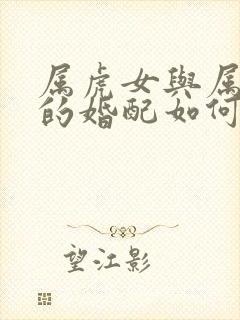 属虎女與属
的婚配如何
望江影